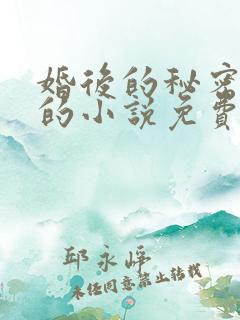 婚後的秘密
的小說免費
邱永崢
未经同意禁止转载